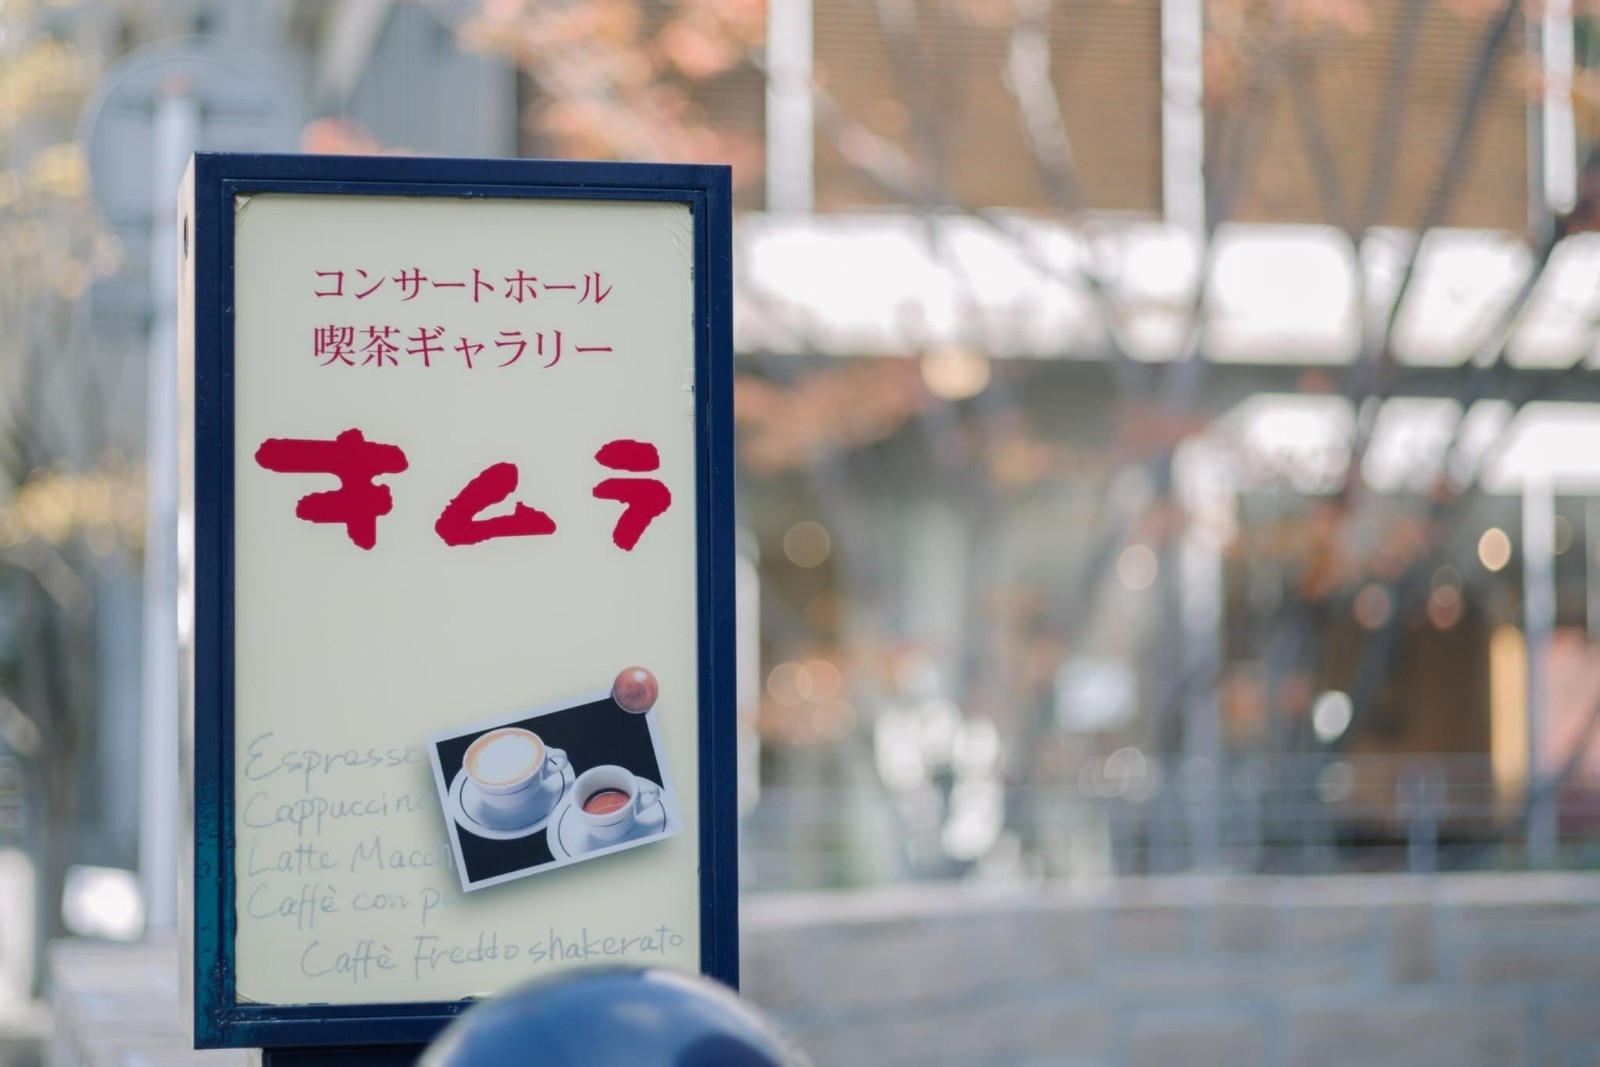 コンサートホール
喫茶ギャラリー
キムラ
Espresso
Cappuccino
Latte Macch
Caffè con p
Caffè Freddo shakerato